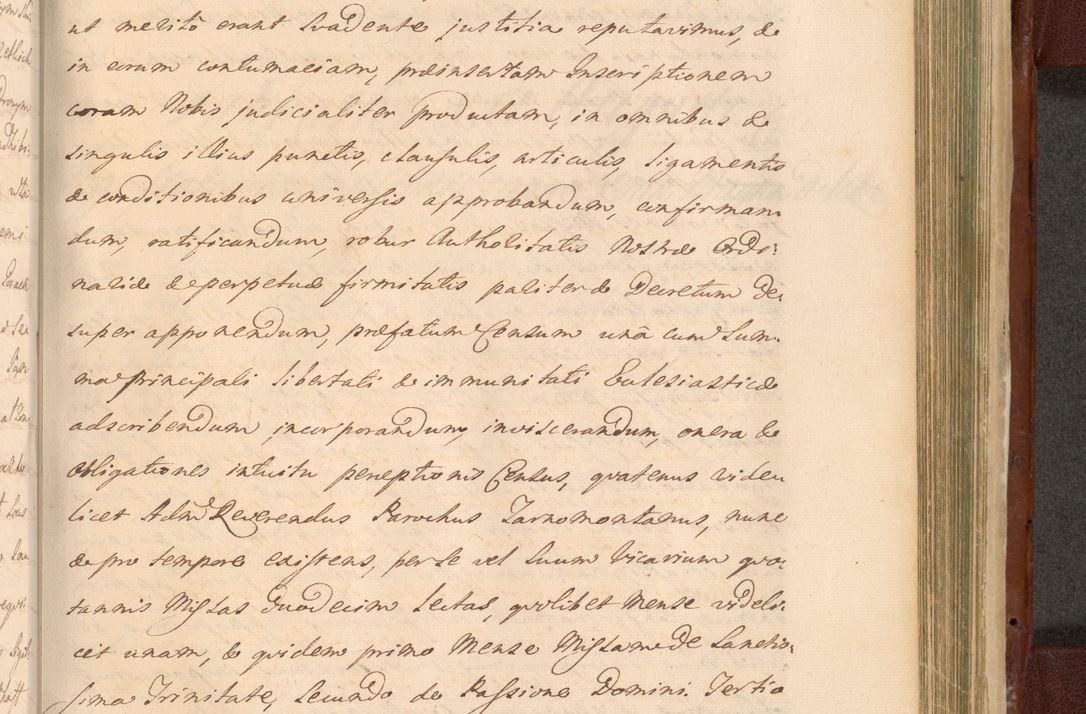 ut meritò erant Svadente justitia reputavimus, &
in eorum contumaciam, præinsertam Inscriptionem
coram Nobis judicialiter productam, in omnibus &
singulis illius punctis, clausulis, articulis, ligamentis
& conditionibus universis approbandum, confirman
dum, ratificandum, robur Authoritatis Nostræ Ordi:
nariæ & perpetuæ firmitatis pariter & Decretum De
super apponendum, præfatum Censum unà cum Sum
ma principali libertati & immunitati Ecclesiasticæ
adscribendum, incorporandum, inviscerandum, onera &
Obligationes intuitu perceptionis Census, quatenus vide
licet Adm Reverendus Parochus Tarnomontanus, nunc
& pro tempore existens, per se vel Suum Vicarium quo:
tannis Missas Duodecim lectas, quolibet Mense videli:
cet unam, & quidem primo Mense Missam de Sanctis:
sima Trinitate, Secundo de Passione Domini. Tertio